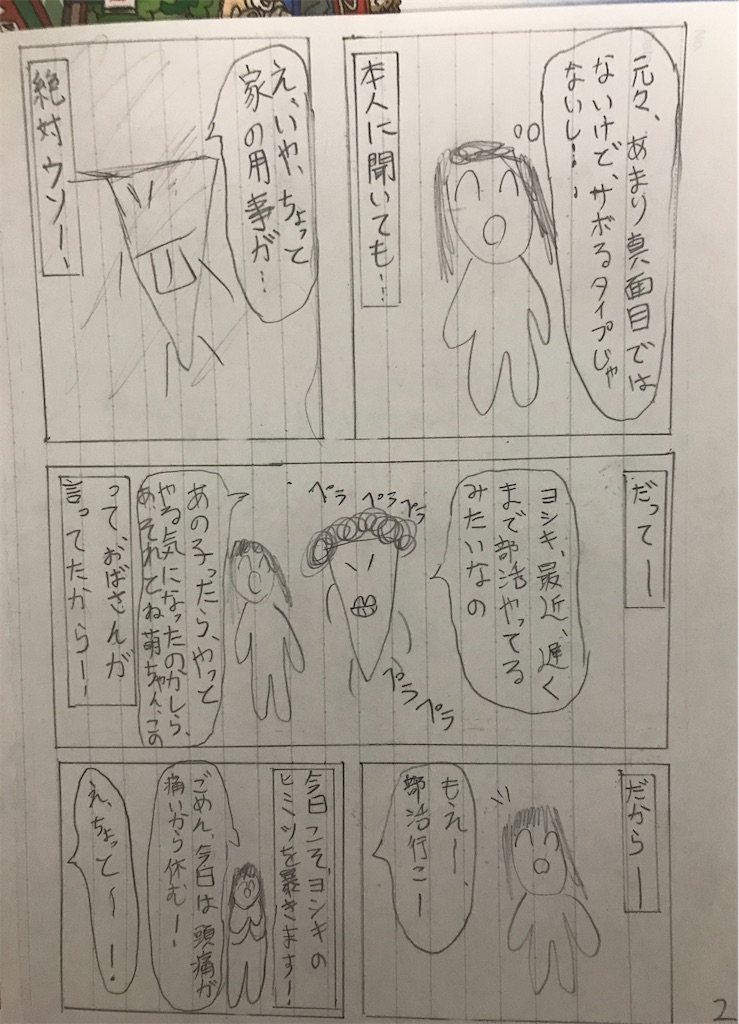 元々、あまり真面目では
ないけど、サボるタイプじゃ
ないし…
本人に聞いても…
え、いや、ちょって
家の用事が…
絶対ウソー、
だってー
ヨシキ、最近、遅く
まで部活やってる
みたいなの
ペラ
ペラ
ペラ
ペラ
ペラ
あの子ったら、やって
やる気になったのかしら、
あ、それでね萌ちゃん、この
って、おばさんが
言ってたからー!
だからー
もえー、
部活行こー
今日こそ、ヨシキの
ヒミツを暴きます!
ごめん、今日は頭痛が
痛いから休む―!
え、ちょって〜!
2